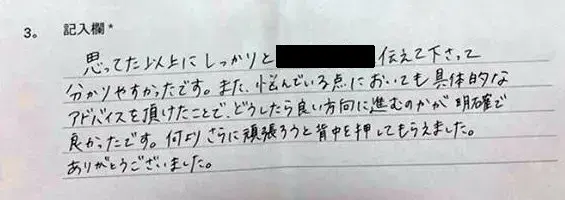 3。 記入欄*
思ってた以上にしっかりと 伝えて下さって
分かりやすかったです。また、悩んでいる点においても具体的な
アドバイスを頂けたことで、どうしたら良い方向に進むのかが明確で
良かったです。何よりさらに頑張ろうと背中を押してもらえました。
ありがとうございました。